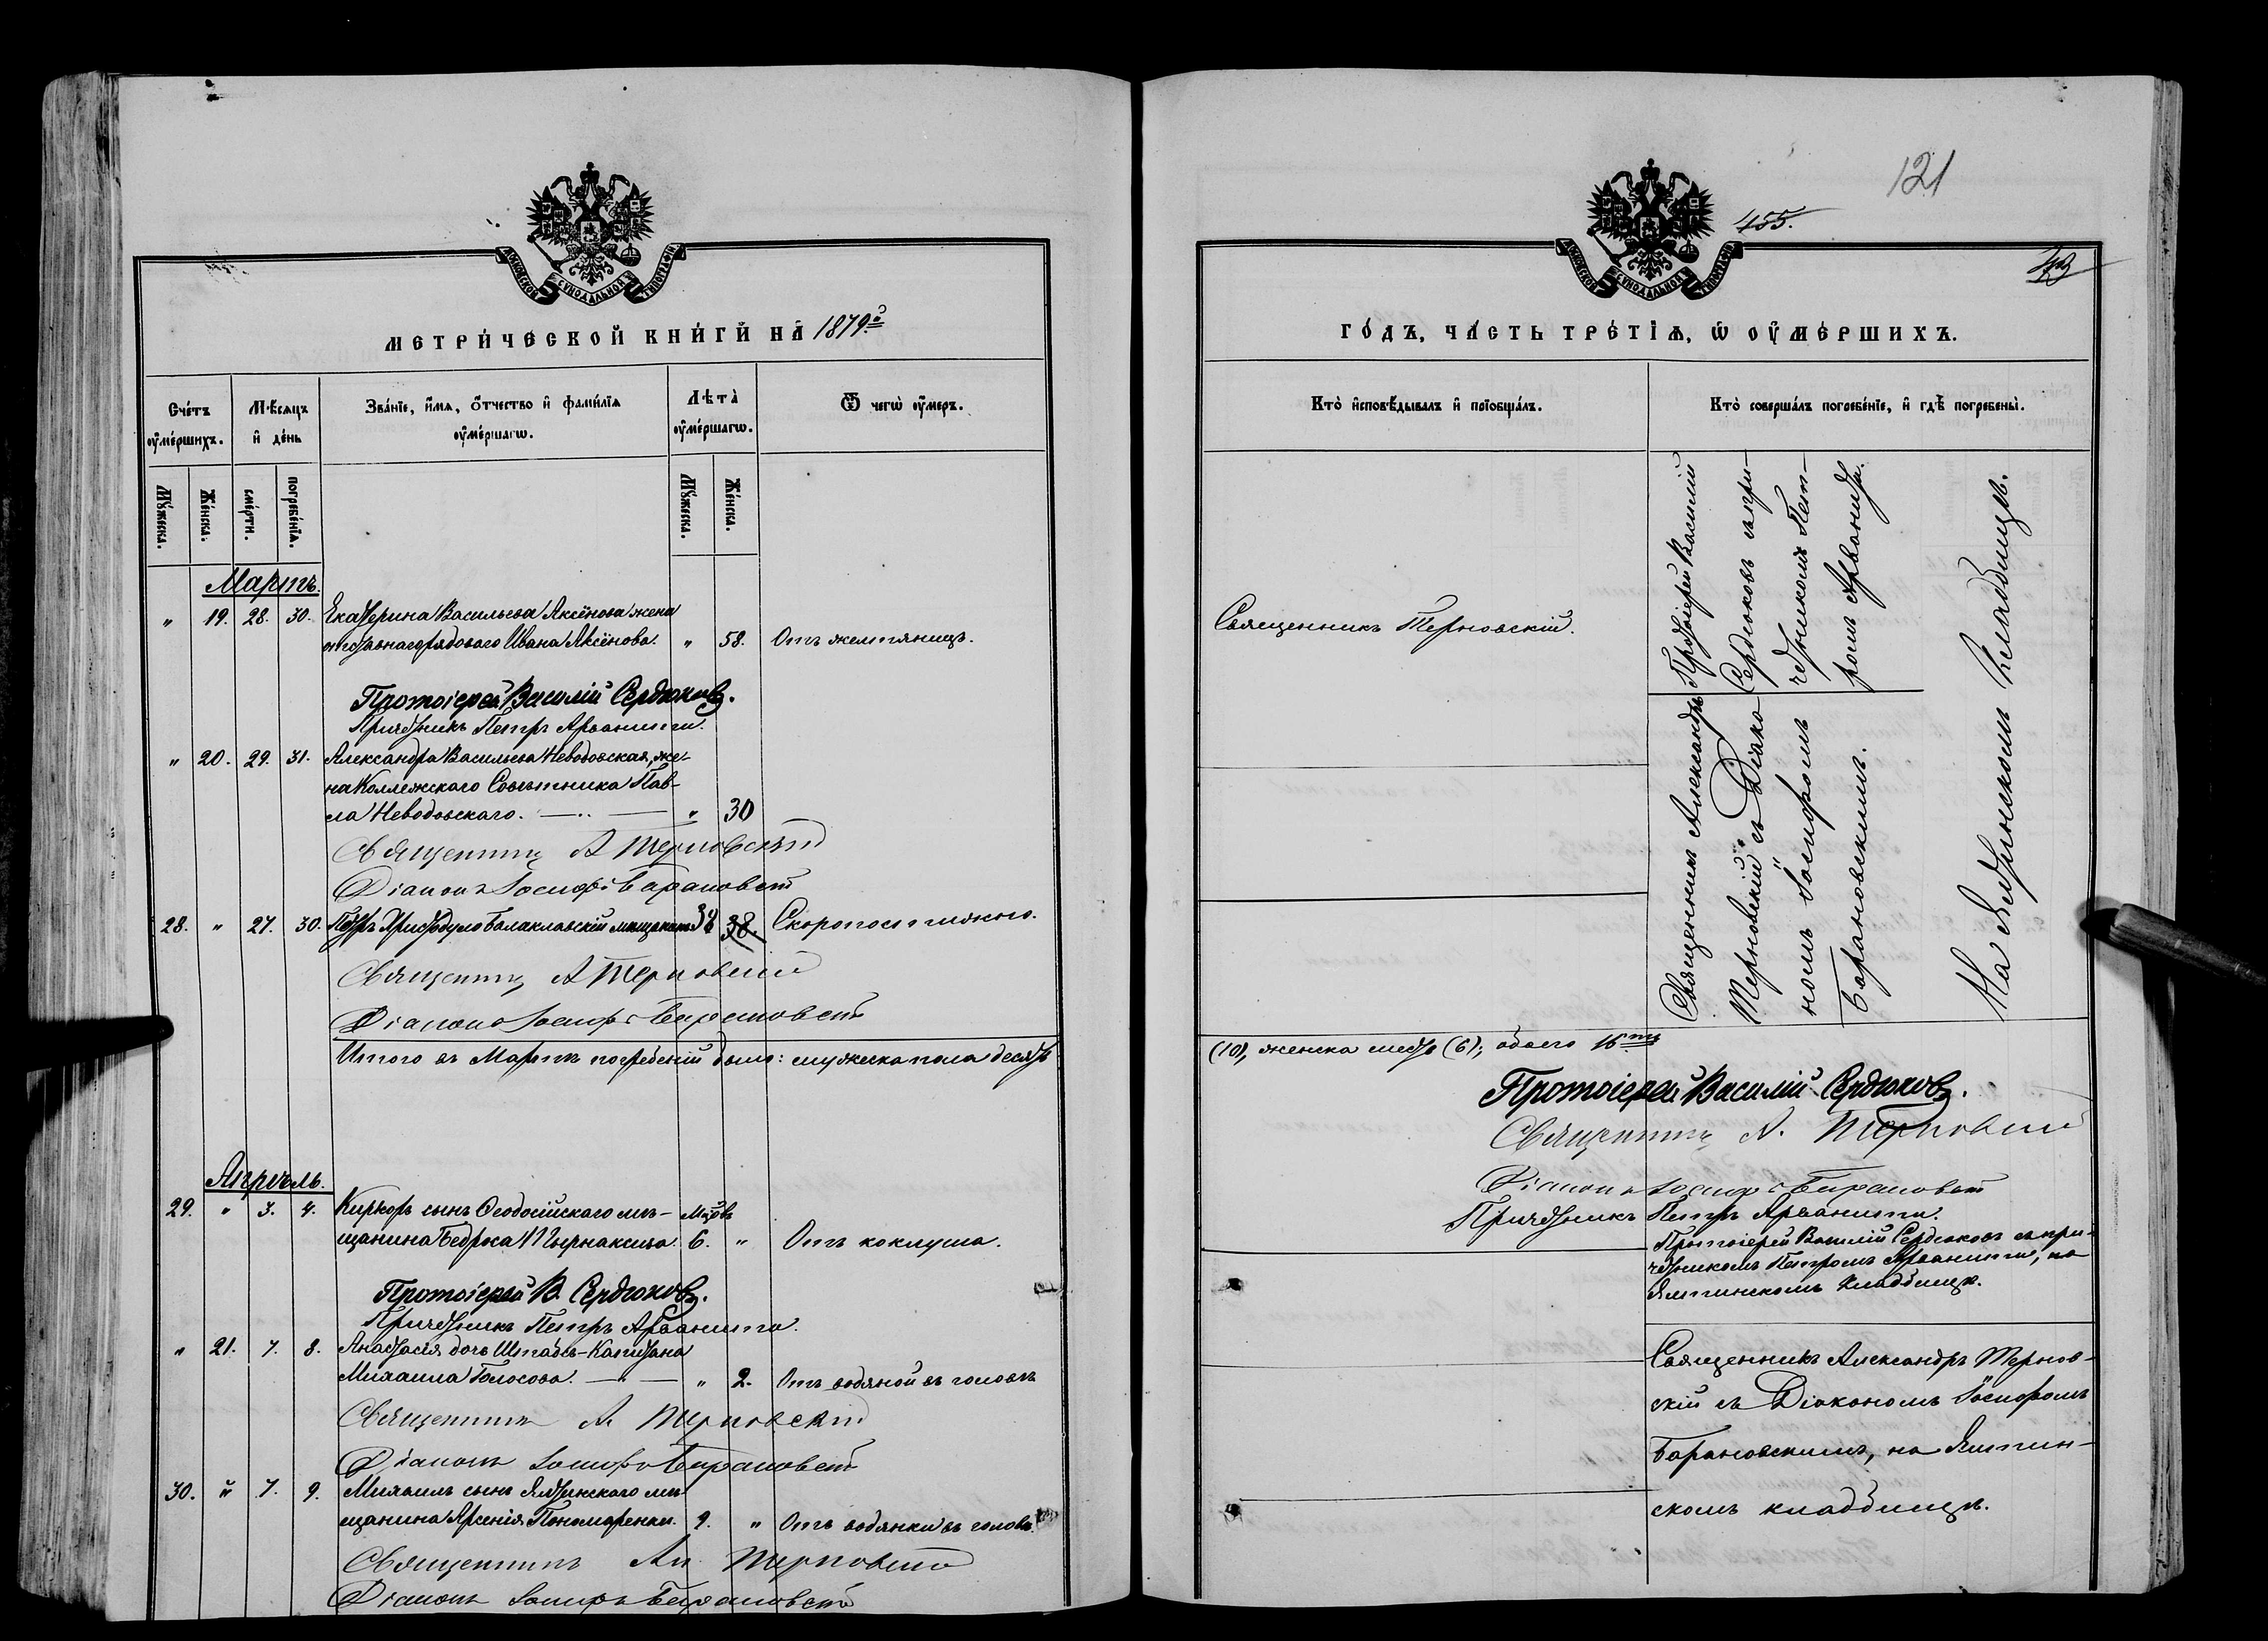 МОСКОВСКОЙ СѴНОДАЛЬНОЙ ТИПОГРАФІИ
МЕТРИ́ЧЕСКОЙ КНИ́ГИ НА 1879й
Сче́тъ оу҆ме́ршихъ.
Мѣ́сяцъ и҆ де́нь
Зва́нїе, и҆́мя, ѻ҆́тчество и҆ фами́лїя оу҆ме́ршагѡ.
Лѣта̀ оу҆ме́ршагѡ.
Ѿ чегѡ̀ оу҆́меръ.
Мꙋ́жеска.
Же́нска.
сме́рти.
погребе́нїѧ.
Мꙋ́жеска.
Же́нска.
Мартъ.
" 19. 28. 30. Екатерина Васильева Аксёнова жена
отставнаго рядоваго Ивана Аксёнова. " 58. Отъ желтяницъ.
Протоіерей Василій Сердюковъ.
Причетникъ Петръ Арванити.
" 20. 29. 31. Александра Васильева Неводовская, же-
на Коллежскаго Совѣтника Пав-
ла Неводовскаго. " 30
Священникъ А Терновскій
Діаконъ Іосифъ Барановскій
28. " 27. 30. Петръ Христодуло Балаклавскій мѣщанинъ 38 38. Скоропостижно.
Священникъ А Терновскій
Діаконъ Іосифъ Барановскій
Итого въ Мартѣ погребеній было: мужеска пола десять
Апрѣль.
29. " 3. 4. Киркоръ сынъ Ѳеодосійскаго мѣ- Мцовъ
щанина Бедроса 6. " Отъ коклуша.
Протоіерей В. Сердюковъ.
Причетникъ Петръ Арванити.
" 21. 7. 8. Анастасія дочь Штабсъ-Капитана
Михаила Голосова. " 2. Отъ водяной въ головѣ
Священникъ А. Терновскій
Діаконъ Іосифъ Барановскій
30. " 7. 9. Михаилъ сынъ Ялтинскаго мѣ-
щанина Арсенія Пономаренки. 9. " Отъ водянки въ головѣ.
Священникъ Ал. Терновскій
Діаконъ Іосифъ Барановскій
121
455.
МОСКОВСКОЙ СѴНОДАЛЬНОЙ ТИПОГРАФІИ
ГО́ДЪ, ЧА́СТЬ ТРЕ́ТЇѦ, Ѡ҆ ОУ҆МЕ́РШИХЪ.
Кто̀ и҆сповѣ́дывалъ и҆ прїобща́лъ.
Кто̀ соверша́лъ погребе́нїе, и҆ гдѣ̀ погребены̀.
Священникъ Терновскій.
Протоіерей Василій
Сердюковъ съ при-
четникомъ Пет-
ромъ Арванити.
Священникъ Александръ
Терновскій съ Діако
номъ Іосифомъ
Барановскимъ.
На Ялтинскомъ Кладбищѣ.
(10), женска шесть (6); обоего 16ть
Протоіерей Василій Сердюковъ.
Священникъ А. Терновскій
Діаконъ Іосифъ Барановскій
Причетникъ Петръ Арванити.
Протоіерей Василій Сердюковъ съ при-
четникомъ Петромъ Арванити, на
Ялтинскомъ Кладбищѣ.
Священникъ Александръ Тернов-
скій съ Діакономъ Іосифомъ
Барановскимъ, на Ялтин-
скомъ кладбищѣ.